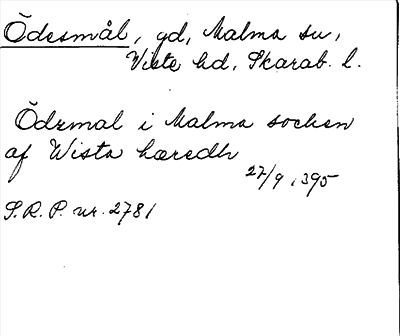 Ödesmål, gd, Malma sn,
Viste hd, Skarab. l.
Ödzmal i Malma sochen
af Wista hæredh
27/9 1395
S.R.P. nr. 2781